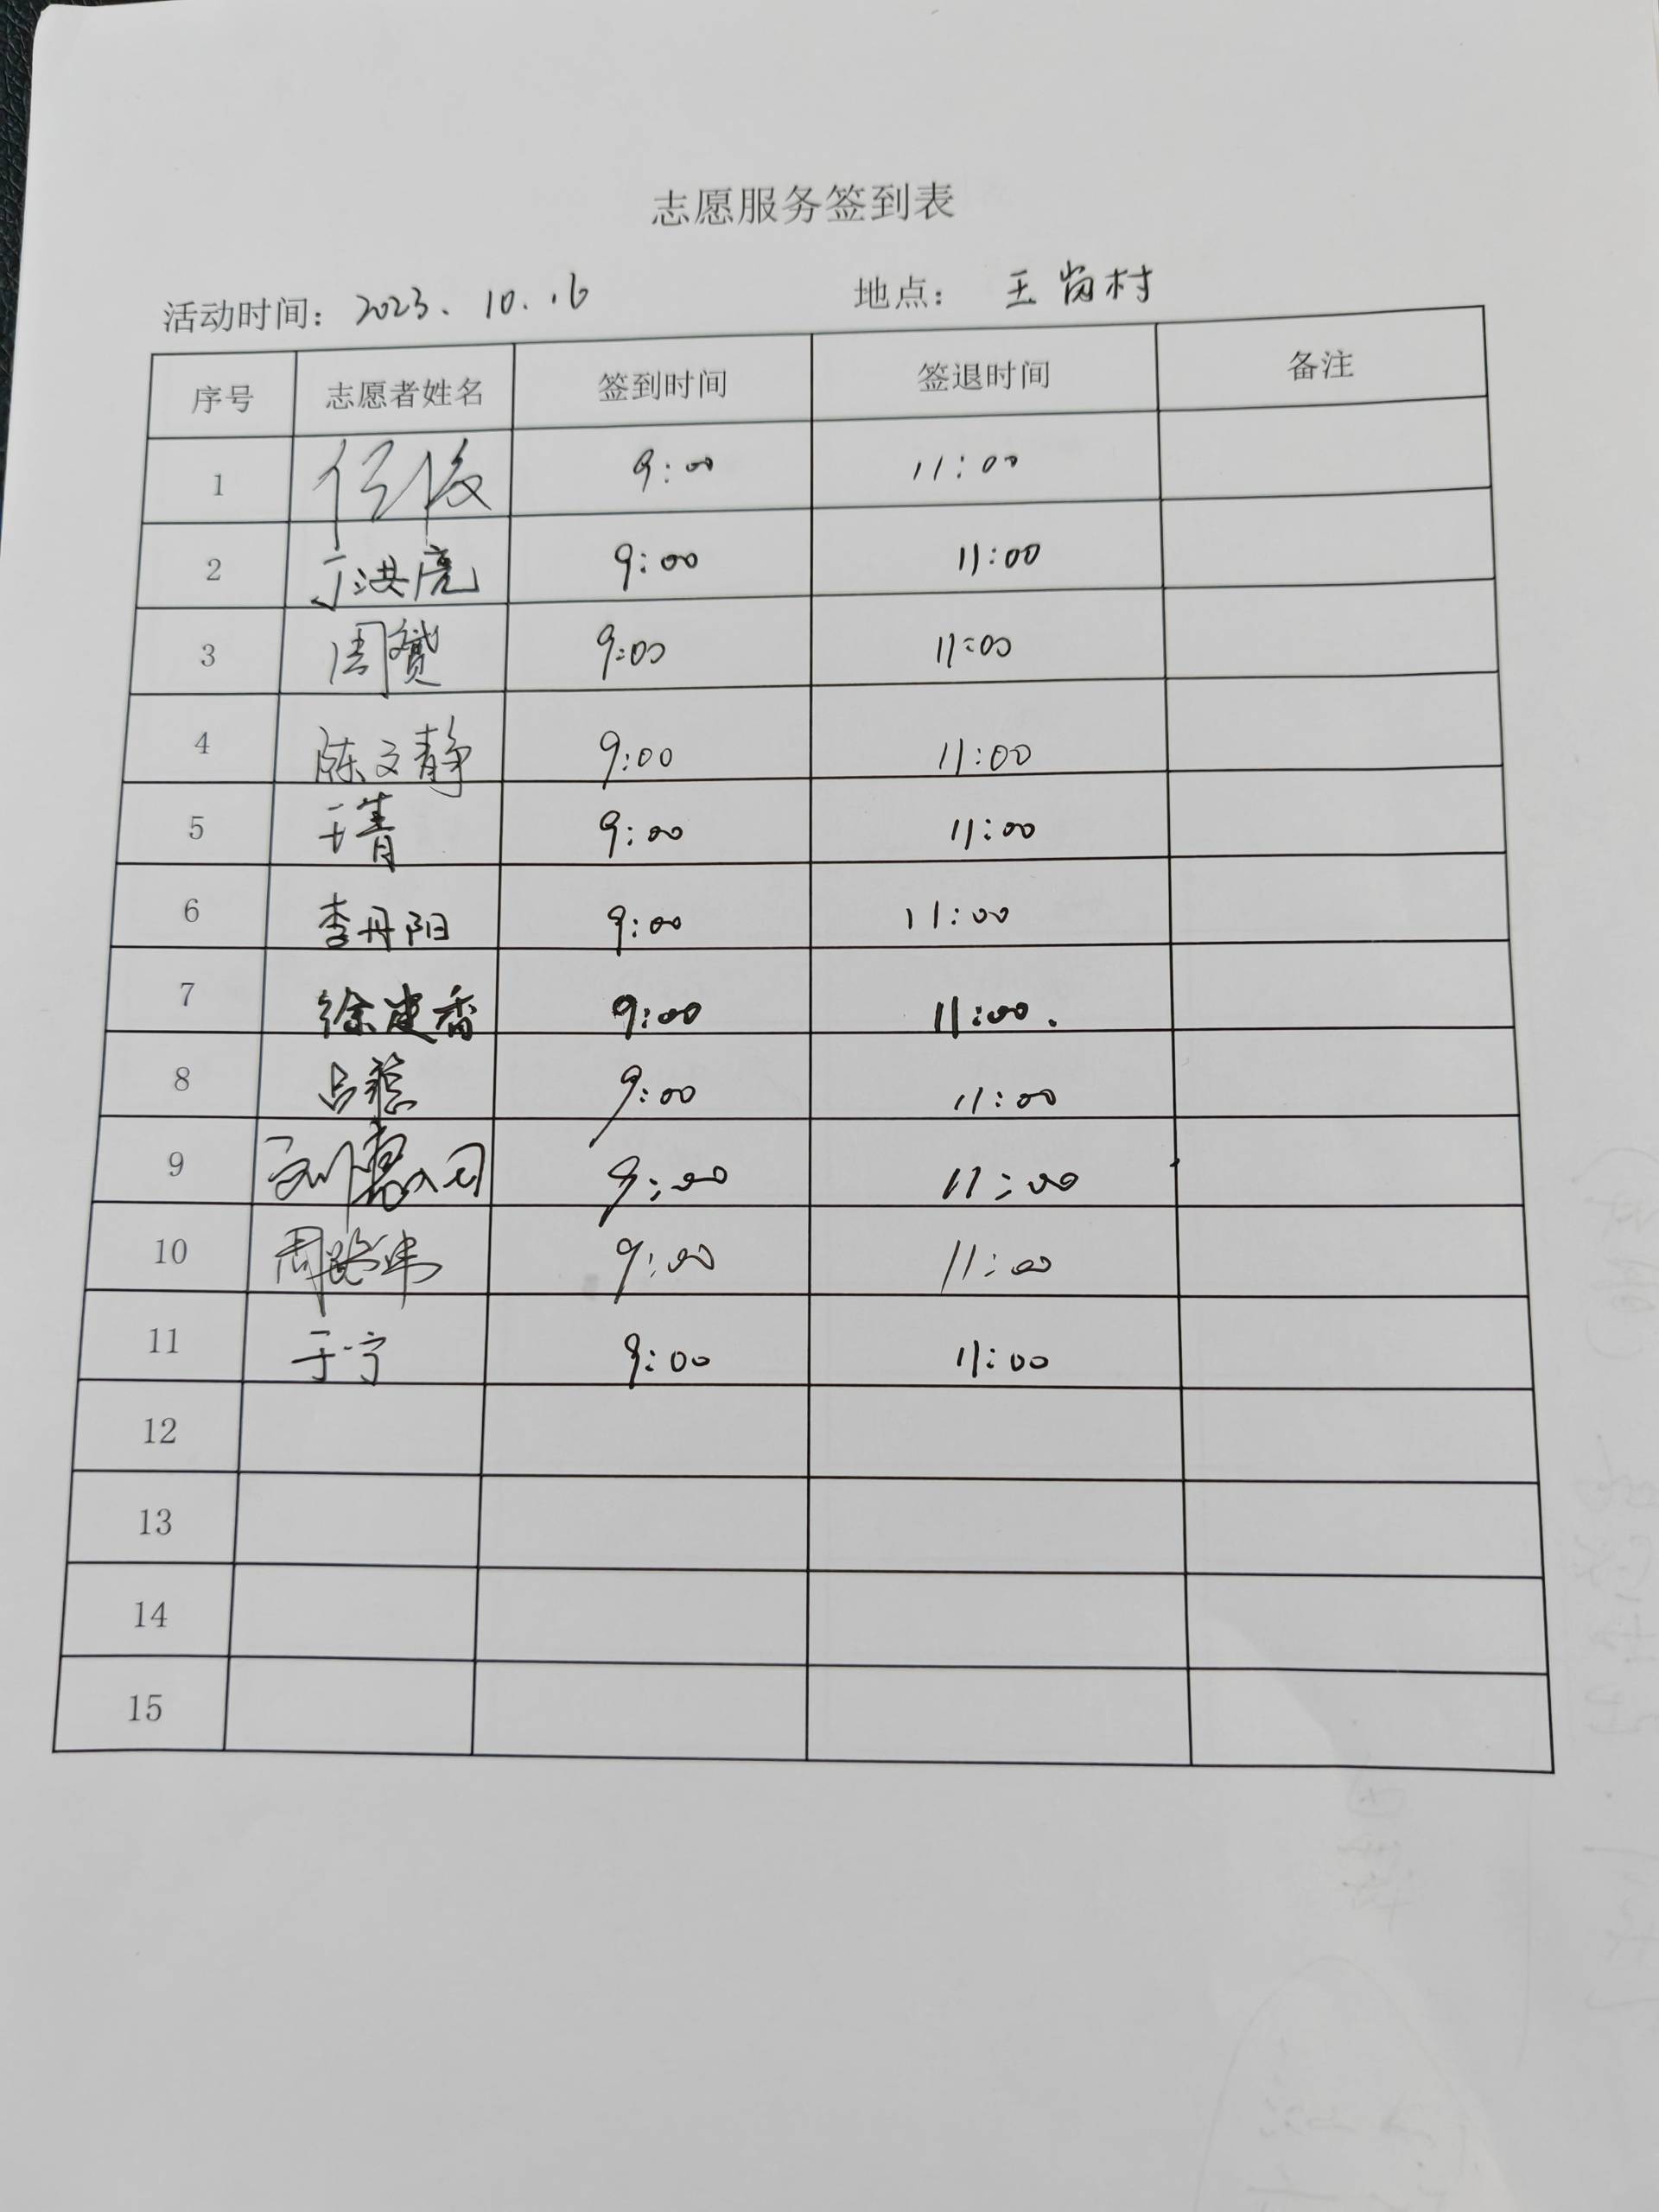 志愿服务签到表
活动时间： 2023. 10. 16 地点： 王岗村
序号 志愿者姓名 签到时间 签退时间 备注
1 任俊 9:00 11:00
2 丁洪亮 9:00 11:00
3 周赟 9:00 11:00
4 陈文静 9:00 11:00
5 于青 9:00 11:00
6 李丹阳 9:00 11:00
7 徐建香 9:00 11:00.
8 9:00 11:00
9 9:00 11:00
10 周路伟 9:00 11:00
11 于宁 9:00 11:00
12
13
14
15